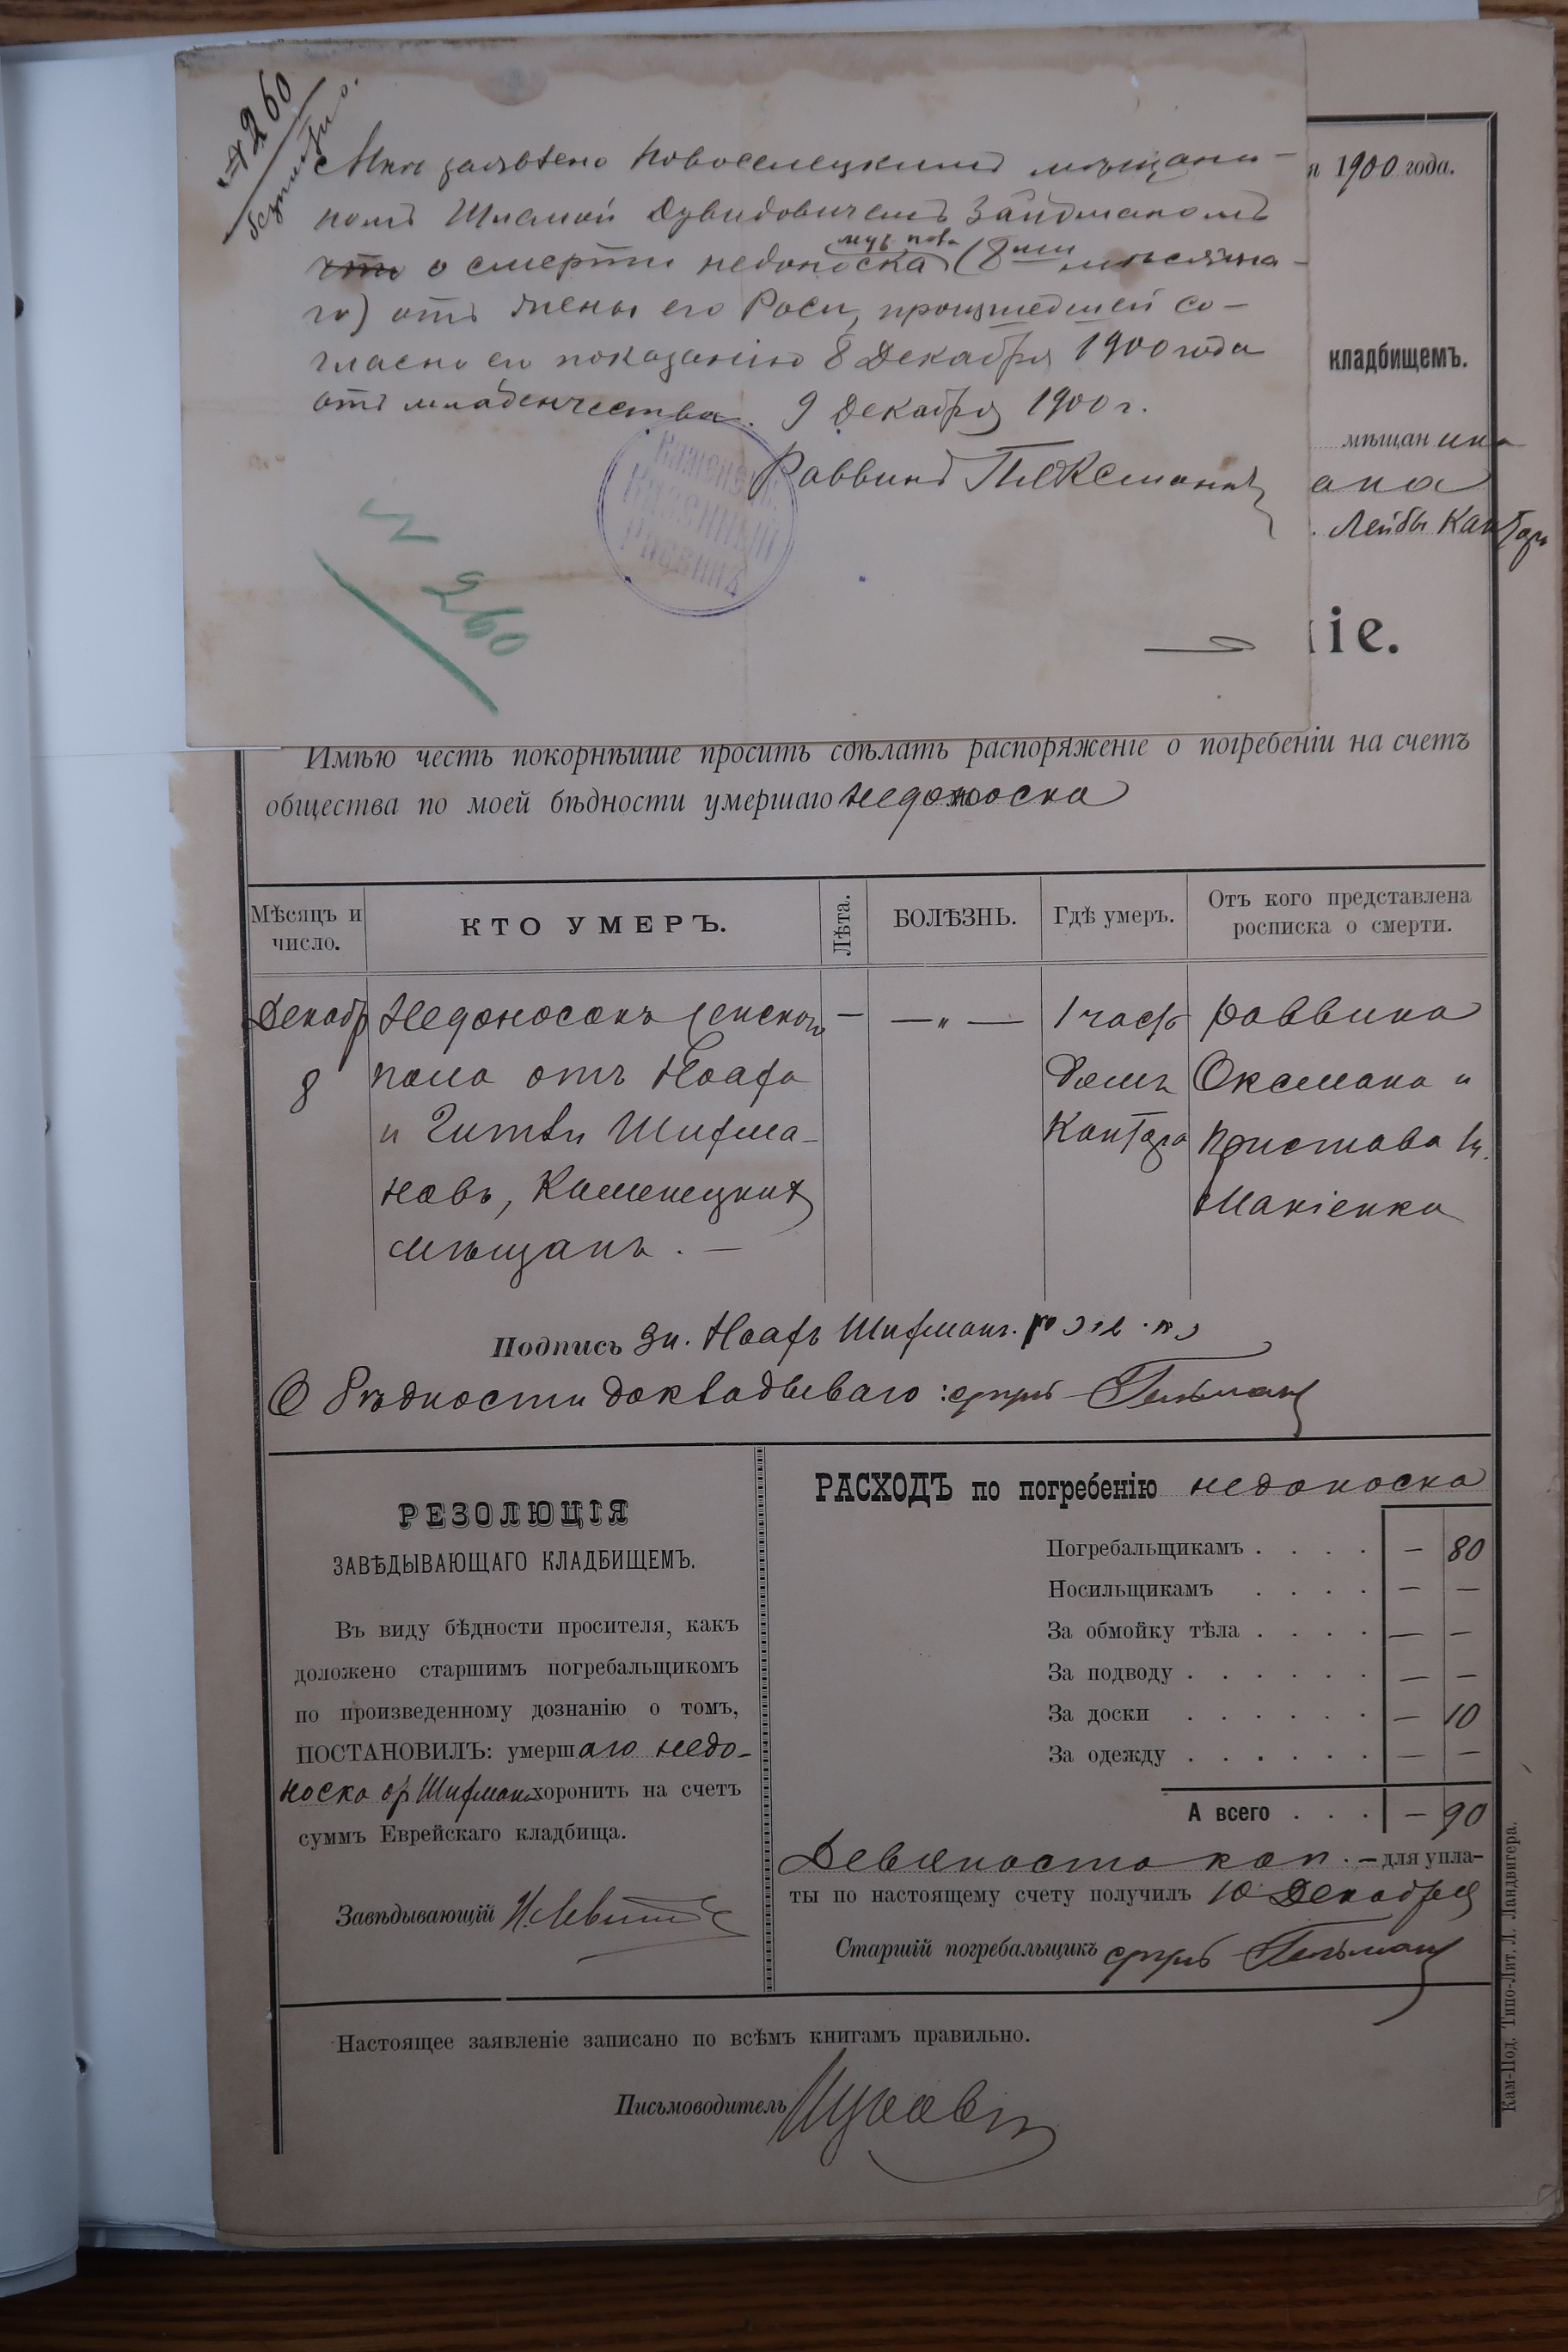 № 260
безплатно.
Мнѣ заявлено Новоселецкимъ мѣщани-
номъ Шлемой Дувидовичемъ Зайдманомъ
что о смерти недоноска муж. пола (8ми мѣсячна-
го) отъ жены его Роси, происшедшей со-
гласно его показанію 8 Декабря 1900 года
отъ младенчества. 9 Декабря 1900 г.
Раввинъ
Казенный
Раввинъ
№ 260
я 1900 года.
кладбищемъ.
мѣщанина
ана
Лейбы Кантора
іе.
Имѣю честь покорнѣйше просить сдѣлать распоряженіе о погребеніи на счетъ
общества по моей бѣдности умершаго недоноска
Мѣсяцъ и число. КТО УМЕРЪ. Лѣта. БОЛѢЗНЬ. Гдѣ умеръ. Отъ кого представлена росписка о смерти.
Декабр Недоносокъ женскаго — —„— 1 часть раввина
8 пола отъ Ноафа домъ Оксмана и
и Гитли Шифма- Кантора Пристава Ін.
новъ, Каменецкихъ Макіенка
мѣщанъ. —
Подпись За. Ноафъ Шифманъ.
О бѣдности докладываю: Гельманъ
РЕЗОЛЮЦІЯ
ЗАВѢДЫВАЮЩАГО КЛАДБИЩЕМЪ.
Въ виду бѣдности просителя, какъ
доложено старшимъ погребальщикомъ
по произведенному дознанію о томъ,
ПОСТАНОВИЛЪ: умершаго недо-
носка Шифмана хоронить на счетъ
суммъ Еврейскаго кладбища.
Завѣдывающій И. Левит
РАСХОДЪ по погребенію недоноска
Погребальщикамъ . . . . — 80
Носильщикамъ . . . . — —
За обмойку тѣла . . . . — —
За подводу . . . . . . — —
За доски . . . . . . — 10
За одежду . . . . . . — —
А всего . . . — 90
Девяносто коп. — для упла-
ты по настоящему счету получилъ 10 Декабря
Старшій погребальщикъ Гельманъ
Настоящее заявленіе записано по всѣмъ книгамъ правильно.
Письмоводитель
Кам-Под. Типо-Лит. Л. Ландвигера.